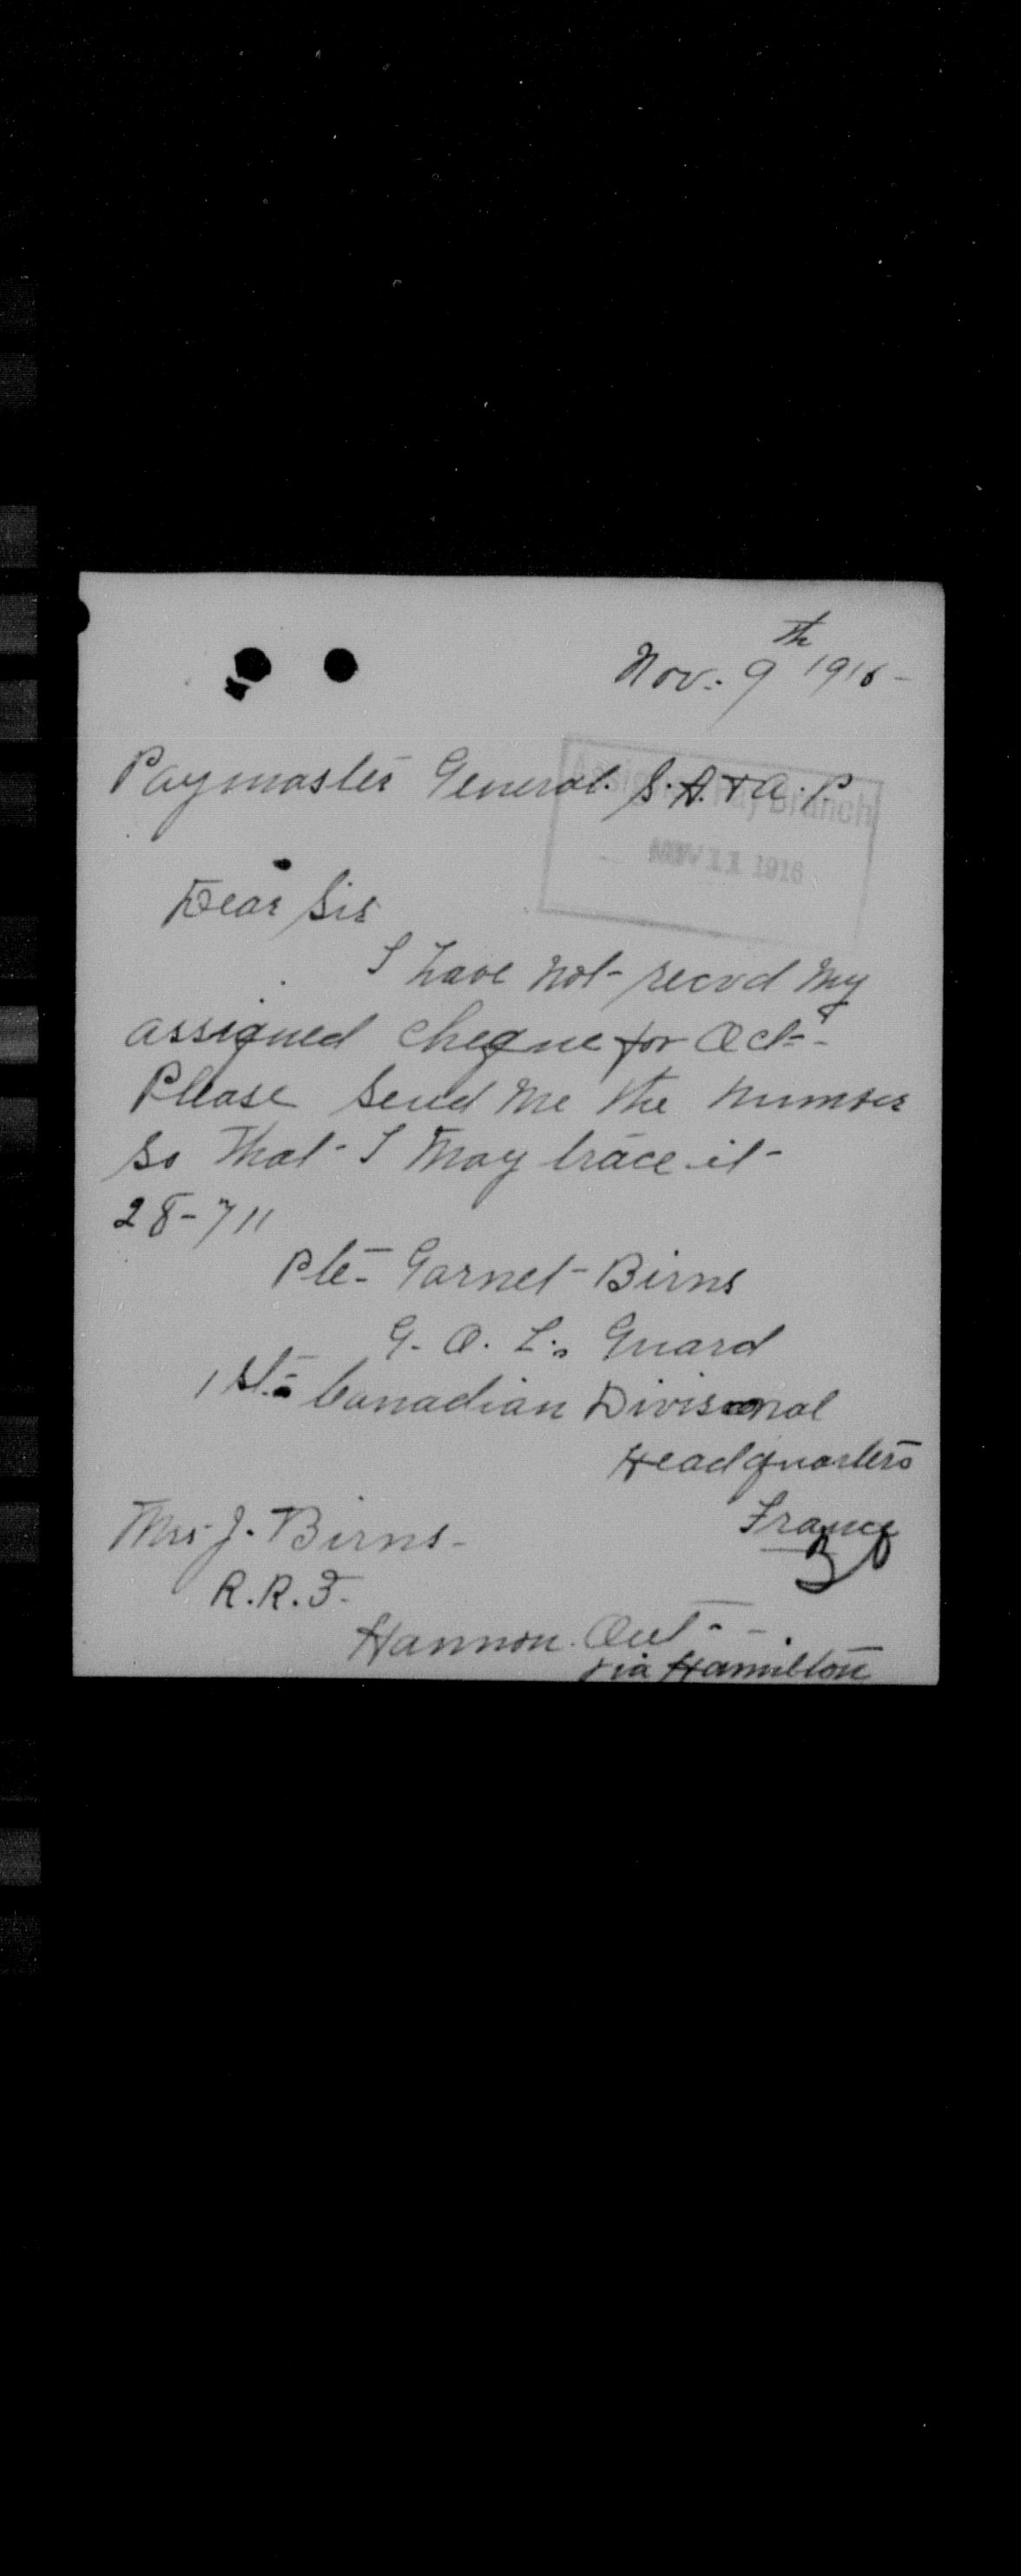 Nov. 9th 1916 -
Paymaster General. S. A. & A. P.
Assigned Pay Branch
NOV 11 1916
Dear Sir
I have not recvd my
assigned cheque for Oct -
Please send me the number
so that I may trace it -
28-711
Pte - Garnet Birns
G. O. C. Guard
1st Canadian Divisional
Headquarters
France
Mrs J. Birns -
R.R.3.
Hannon. Ont -
via Hamilton